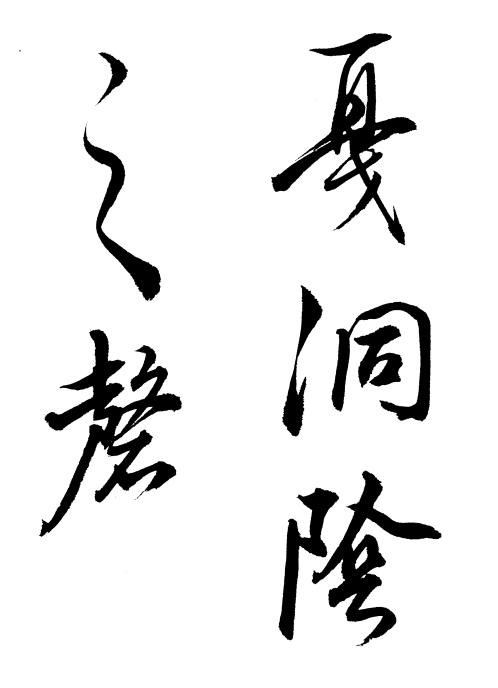 戛洞陰
之磬